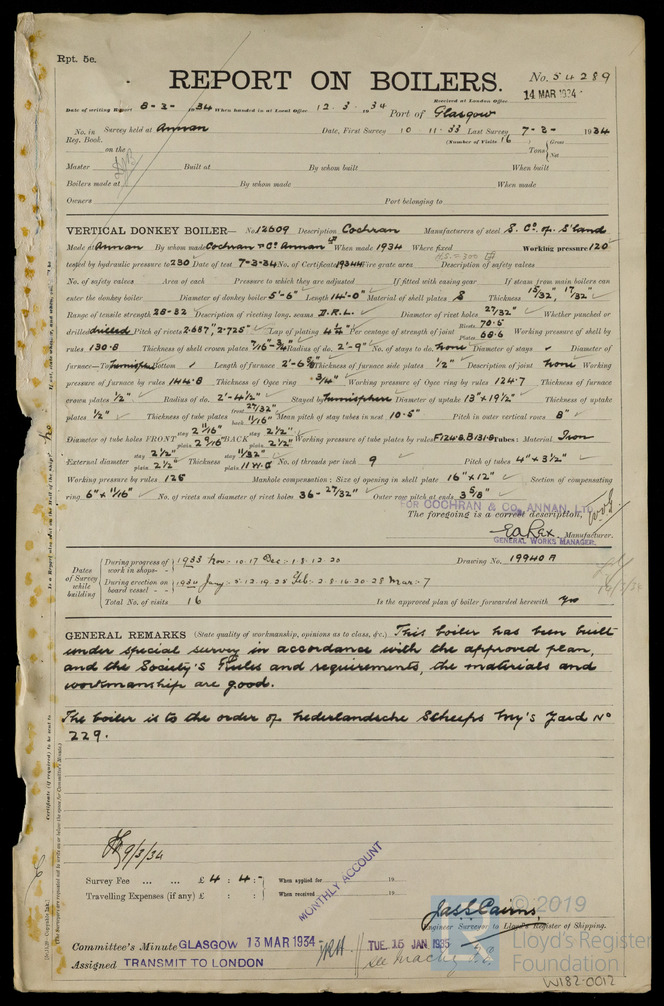 Rpt. 5c.
REPORT ON BOILERS.
No. 54289
Received at London Office 14 MAR 1934
Date of writing Report 8-3-1934 When handed in at Local Office 12.3.1934 Port of Glasgow
No. in Reg. Book. Survey held at Annan Date, First Survey 10 11.33 Last Survey 7-3-1934
(Number of Visits 16) Tons { Gross
on the Net
Master Built at By whom built When built
Boilers made at By whom made When made
Owners Port belonging to
VERTICAL DONKEY BOILER— No 12609 Description Cochran Manufacturers of steel S. Co. of S'land
Made at Annan By whom made Cochran & Co. Annan Ld When made 1934 Where fixed Working pressure 120
H.S. = 300
tested by hydraulic pressure to 230 Date of test 7-3-34 No. of Certificate 19344 Fire grate area Description of safety valves
No. of safety valves Area of each Pressure to which they are adjusted If fitted with easing gear If steam from main boilers can
enter the donkey boiler Diameter of donkey boiler 5'-6" Length 14'-0" Material of shell plates S Thickness 15/32", 17/32"
Range of tensile strength 28-32 Description of riveting long. seams D.R.L. Diameter of rivet holes 27/32" Whether punched or
drilled drilled Pitch of rivets 2.687", 2.725" Lap of plating 4 1/2" Per centage of strength of joint Rivets 70.5 Plates 68.6 Working pressure of shell by
rules 130.8 Thickness of shell crown plates 7/16"-3/4" Radius of do. 2'-9" No. of stays to do. None Diameter of stays Diameter of
furnace—Top Hemisphel Bottom Length of furnace 2'-6 Thickness of furnace side plates 1/2" Description of joint None Working
pressure of furnace by rules 144.8 Thickness of Ogee ring 3/4" Working pressure of Ogee ring by rules 124.7 Thickness of furnace
crown plates 1/2" Radius of do. 2'-4 1/2" Stayed by Hemisphere Diameter of uptake 13" x 19 1/2" Thickness of uptake
plates 1/2" Thickness of tube plates front 27/32" back 11/16" Mean pitch of stay tubes in nest 10.5" Pitch in outer vertical rows 8"
Diameter of tube holes FRONT stay 2 11/16" plain 2 9/16" BACK stay 2 1/2" plain 2 1/2" Working pressure of tube plates by rules F124.8.B131.8 Tubes: Material Iron
External diameter stay 2 1/2" plain 2 1/2" Thickness stay 11/32" plain 11 W.G No. of threads per inch 9 Pitch of tubes 4" x 3 1/2"
Working pressure by rules 125 Manhole compensation: Size of opening in shell plate 16" x 12" Section of compensating
ring 6" x 11/16" No. of rivets and diameter of rivet holes 36-27/32" Outer row pitch at ends 3 5/8"
FOR COCHRAN & Co. ANNAN, LTD
The foregoing is a correct description,
EA Rex Manufacturer.
GENERAL WORKS MANAGER.
Dates of Survey while building
During progress of work in shops - - 1933 Nov:- 10.17 Dec:- 1.8.12.20
Drawing No. 19940A
During erection on board vessel - - - 1934 Jany:- 5.12.19.25 Feb:- 2.8.16.20.28 Mar:- 7
Total No. of visits 16 Is the approved plan of boiler forwarded herewith Yes
16/3/34
GENERAL REMARKS (State quality of workmanship, opinions as to class, &c.) This boiler has been built
under special survey in accordance with the approved plan,
and the Society's Rules and requirements, the materials and
workmanship are good.
The boiler is to the order of Nederlandsche Scheeps My's Yard No
229.
9/3/34
Survey Fee ... ... £ 4 : 4 : - When applied for 19
Travelling Expenses (if any) £ : : When received 19
MONTHLY ACCOUNT
Jas S Cairns
Engineer Surveyor to Lloyd's Register of Shipping.
Committee's Minute GLASGOW 13 MAR 1934 TUE. 15 JAN 1935
Assigned TRANSMIT TO LONDON
© 2019
Lloyd's Register
Foundation
W182-0012